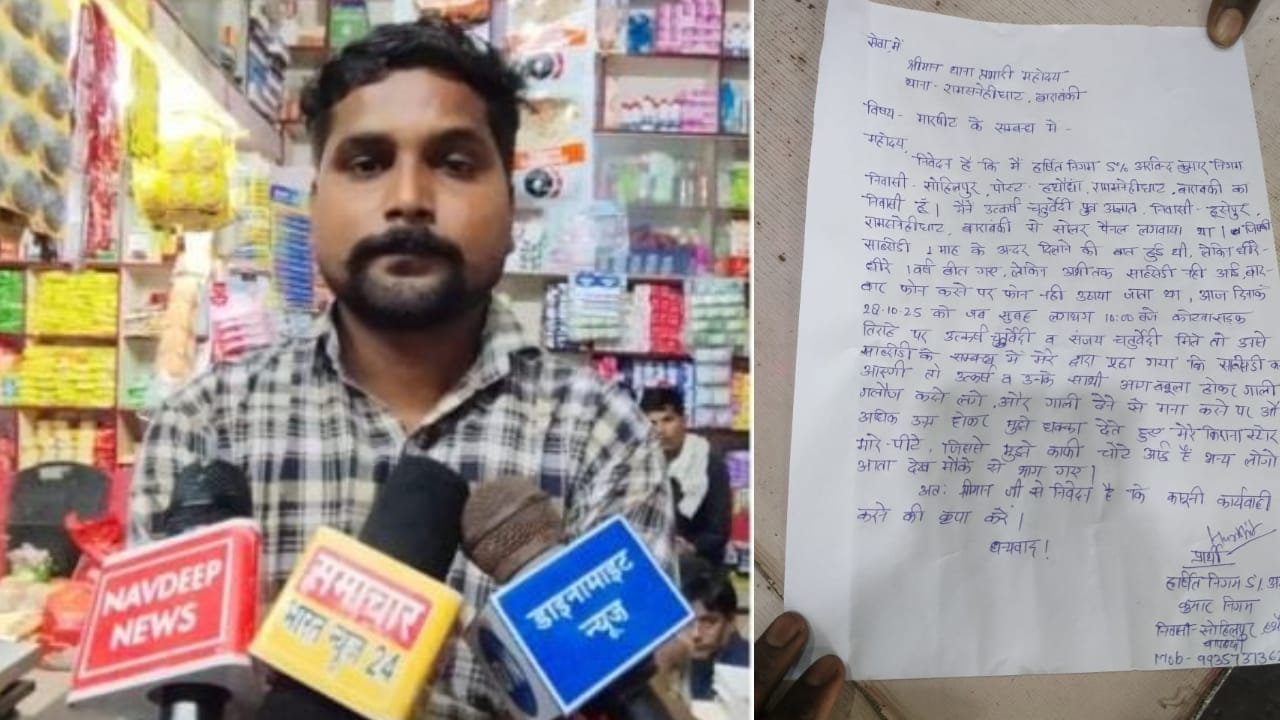 NAVDEEP
NEWS
समाचार
भारत न्यूज 24
डाइनामाइट
न्यूज
सेवा में
श्रीमान थाना प्रभारी महोदय
थाना - रामसनेहीघाट, बाराबंकी
विषय - मारपीट के सम्बन्ध में -
महोदय,
निवेदन है कि मैं हर्षित निगम S/o अरविन्द कुमार निगम
निवासी - मोहिलपुर पोस्ट - हथौंधा, रामसनेहीघाट, बाराबंकी का
निवासी हूं। मैंने उत्कर्ष चतुर्वेदी पुत्र अज्ञात, निवासी -
रामसनेहीघाट, बाराबंकी से सोलर पैनल लगवाया था। जिसकी
सब्सिडी 1 माह के अंदर दिलाने की बात हुई थी, लेकिन धीरे-
धीरे 1 वर्ष बीत गए, लेकिन अभीतक सब्सिडी नहीं आई बार-
बार फोन करने पर फोन नहीं उठाया जाता था, आज दिनांक
28.10.25 को जब सुबह लगभग 10:00 बजे कोटवासड़क
तिराहे पर उत्कर्ष चतुर्वेदी व संजय चतुर्वेदी मिले तो उनसे
सब्सिडी के सम्बन्ध में मेरे द्वारा पूछा गया कि सब्सिडी
आएगी तो उत्कर्ष व उनके साथी आग बबूला होकर गाली
गलौज करने लगे, और गाली देने से मना करने पर
अधिक उग्र होकर मुझे धक्का देते हुए मेरे किराना स्टोर
मारे-पीटे, जिससे मुझे काफी चोटे आई है अन्य लोगो
आता देख मौके से भाग गए।
अतः श्रीमान जी से निवेदन है कि कानूनी कार्यवाही
करने की कृपा करें।
धन्यवाद!
प्रार्थी
हर्षित निगम S/o
कुमार निगम
निवासी - मोहिलपुर
बाराबंकी
Mob - 993573736